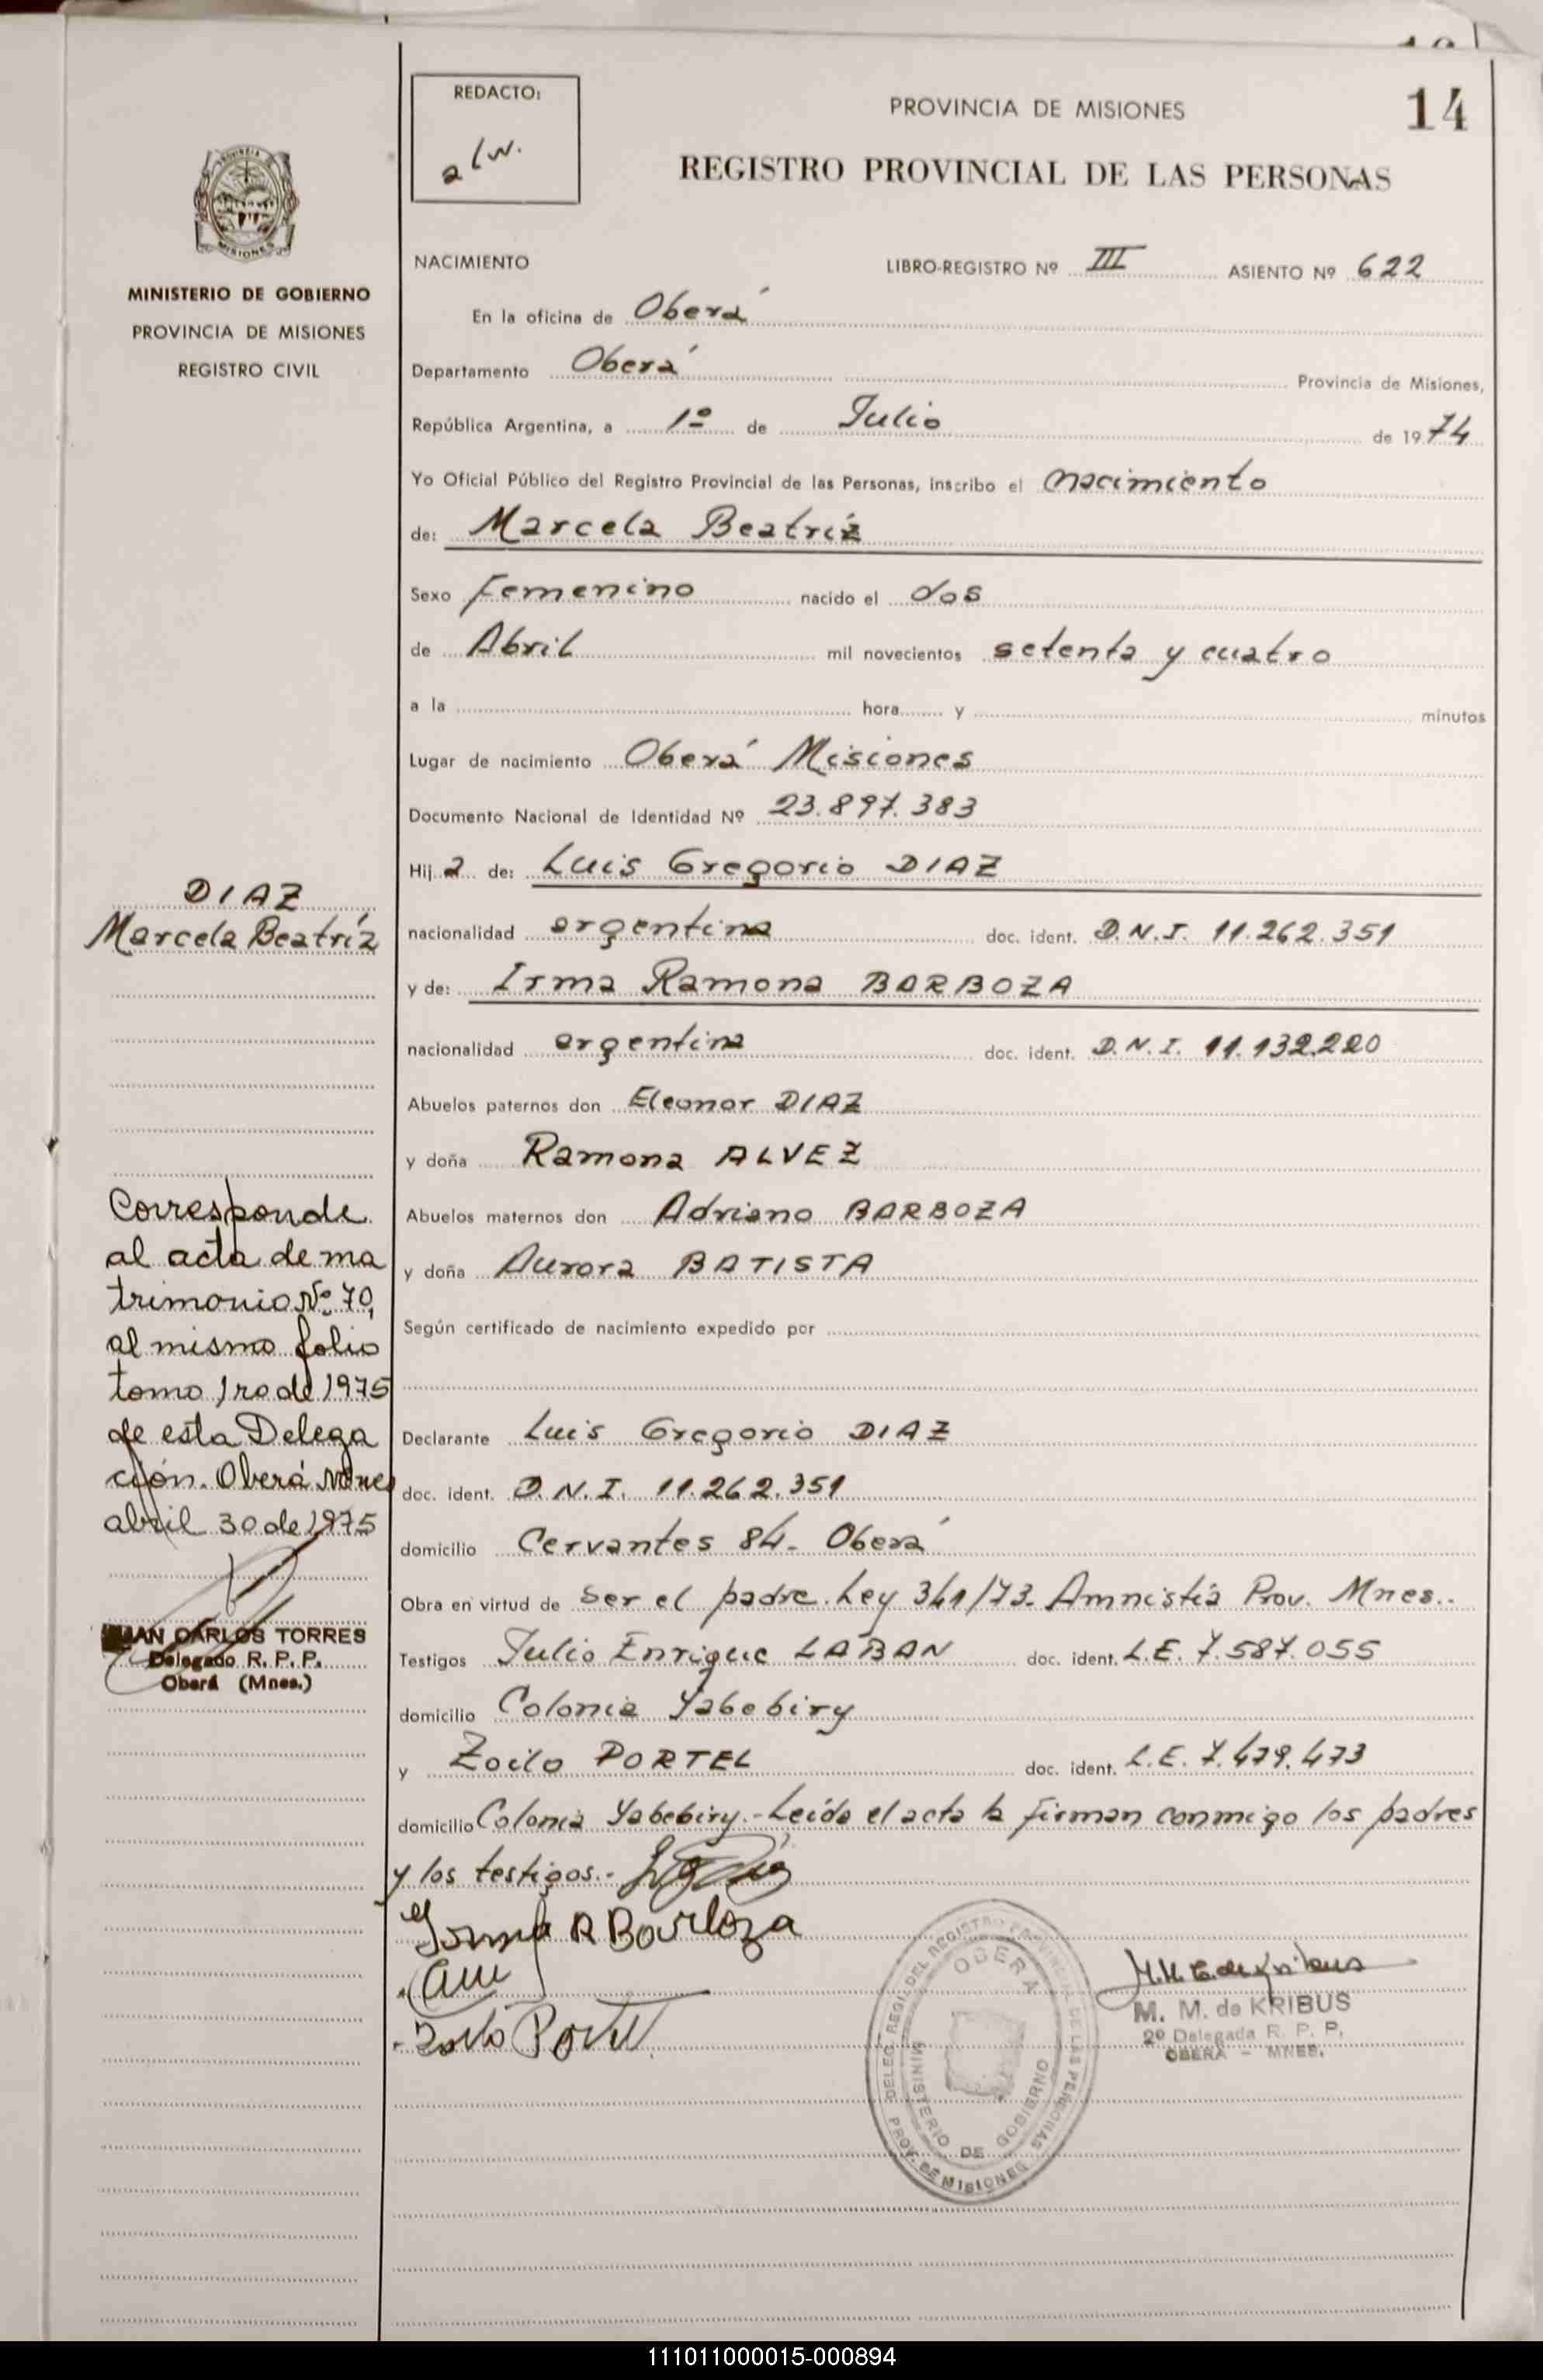 14
PROVINCIA DE MISIONES
REGISTRO PROVINCIAL DE LAS PERSONAS
REDACTO:
MISIONES
MINISTERIO DE GOBIERNO
PROVINCIA DE MISIONES
REGISTRO CIVIL
NACIMIENTO LIBRO-REGISTRO Nº III ASIENTO Nº 622
En la oficina de Oberá
Departamento Oberá Provincia de Misiones,
República Argentina, a 1º de Julio de 1974
Yo Oficial Público del Registro Provincial de las Personas, inscribo el nacimiento
de: Marcela Beatríz
Sexo Femenino nacido el dos
de Abril mil novecientos setenta y cuatro
a la hora y minutos
Lugar de nacimiento Oberá Misiones
Documento Nacional de Identidad Nº 23.897.383
Hija de: Luis Gregorio DIAZ
nacionalidad argentina doc. ident. D.N.I. 11.262.351
y de: Irma Ramona BARBOZA
nacionalidad argentina doc. ident. D.N.I. 11.132.220
Abuelos paternos don Eleonor DIAZ
y doña Ramona ALVEZ
Abuelos maternos don Adriano BARBOZA
y doña Aurora BATISTA
Según certificado de nacimiento expedido por
Declarante Luis Gregorio DIAZ
doc. ident. D.N.I. 11.262.351
domicilio Cervantes 84- Oberá
Obra en virtud de ser el padre. Ley 341/73- Amnistía Prov. Mnes..
Testigos Julio Enrique LABAN doc. ident. L.E. 7.587.055
domicilio Colonia Yabebiry
y Zoilo PORTEL doc. ident. L.E. 7.479.473
domicilio Colonia Yabebiry.- Leída el acta la firman conmigo los padres
y los testigos.-
Irma R Barboza
DIAZ
Marcela Beatríz
Corresponde
al acta de ma
trimonio Nº 70,
al mismo folio
tomo 1ro de 1975
de esta Delega
ción. Oberá Mnes
abril 30 de 1975
JUAN CARLOS TORRES
Delegado R. P. P.
Oberá (Mnes.)
DELEG. REG. DEL REGISTRO PROVINCIAL DE LAS PERSONAS
OBERA
MINISTERIO DE GOBIERNO
PROV. DE MISIONES
M. M. de KRIBUS
2º Delegada R. P. P.
OBERA - MNES.
111011000015-000894